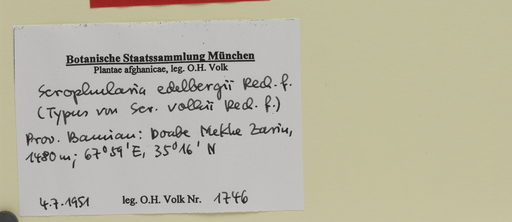 Botanische Staatssammlung München
Plantae afghanicae, leg. O.H. Volk
Scrophularia edelbergii Rech. f.
(Typus von Scr. volkii Rech. f.)
Prov. Bamian: Doabe Mekhe Zarin,
1480 m; 67°59'E, 35°16' N
4.7.1951 leg. O.H. Volk Nr. 1746